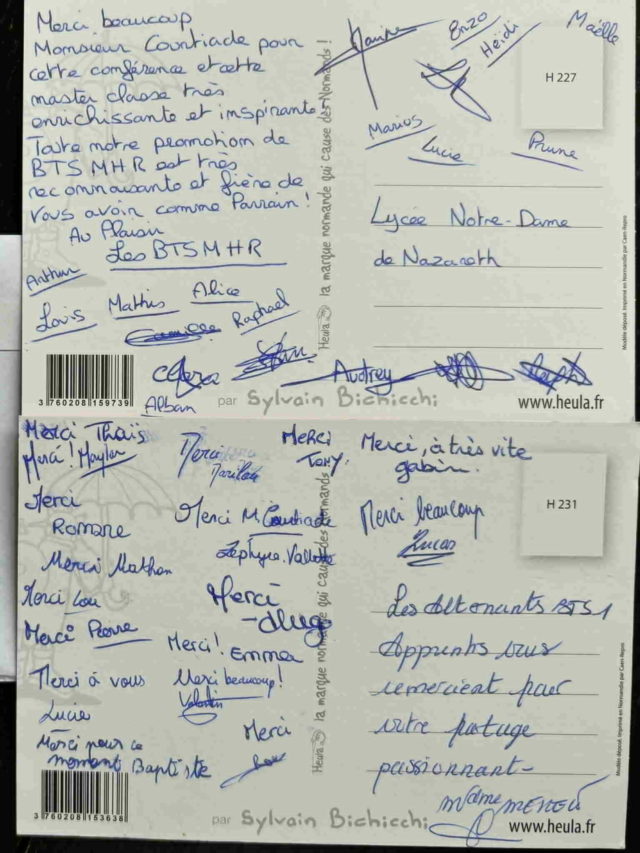 Merci beaucoup
Monsieur Courtiade pour
cette conférence et cette
master classe très
enrichissante et inspirante
Toute notre promotion de
BTS MHR est très
reconnaissante et fière de
vous avoir comme Parrain !
Au Plaisir
Les BTS MHR
Arthur
Louis
Mathis
Alice
Raphael
Camille
Clara
Alban
Audrey
Enzo
Heïdi
Maëlle
Marius
Lucie
Prune
H 227
Lycée Notre-Dame
de Nazareth
Heula la marque normande qui cause des Normands !
Modèle déposé. Imprimé en Normandie par Caen Repro
3 760208 159739
par Sylvain Bichicchi
www.heula.fr
Merci Thaïs
Merci !
Merci
Romane
Merci Mathan
Merci Lou
Merci Pierre
Merci à vous
Lucie
Merci pour ce
moment Baptiste
Merci
Marilou
Merci M. Courtiade
Zéphyre
Merci
Merci !
Emma
Merci beaucoup !
Valentin
Merci
Merci
Tomy.
Merci, à très vite
gabin.
Merci beaucoup
Lucas
H 231
Les Alternants BTS1
Apprentis vous
remercient pour
votre partage
passionnant-
Mdame
Heula la marque normande qui cause des Normands !
Modèle déposé. Imprimé en Normandie par Caen Repro
3 760208 153638
par Sylvain Bichicchi
www.heula.fr